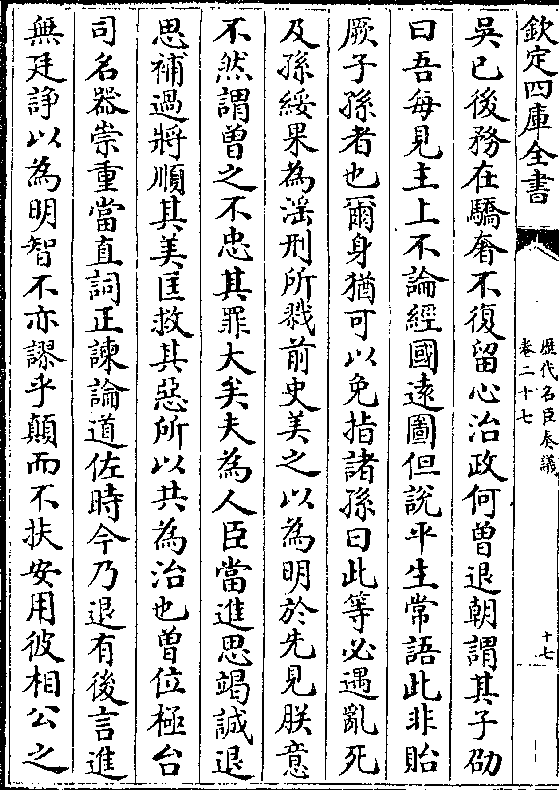 欽定四庫全書
歷代名臣奏議
卷二十七
十七
吳已後務在驕奢不復留心治政何曽退朝謂其子劭
曰吾每見主上不論經國逺圖但説平生常語此非貽
厥子孫者也爾身猶可以免指諸孫曰此等必遇亂死
及孫綏果為淫刑所戮前史美之以為明於先見朕意
不然謂曽之不忠其罪大矣夫為人臣當進思竭誠退
思補過將順其美匡救其惡所以共為治也曽位極台
司名器崇重當直詞正諫論道佐時今乃退有後言進
無廷諍以為明智不亦謬乎顛而不扶安用彼相公之